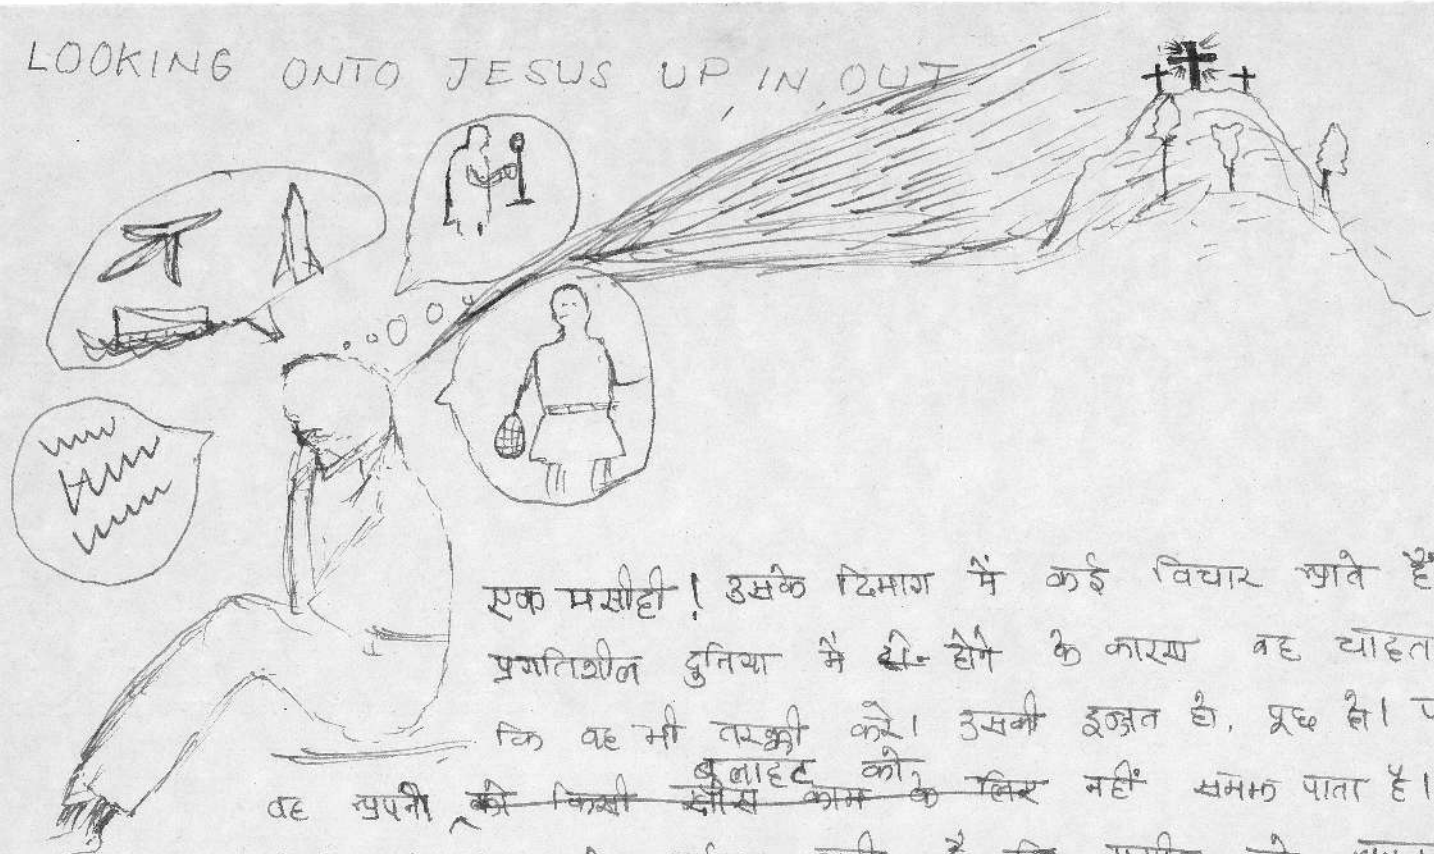 LOOKING ONTO JESUS UP, IN, OUT
एक मसीही! उसके दिमाग में कई विचार आते हैं
प्रगतिशील दुनिया में होने के कारण वह चाहता
कि वह भी तरक्की करे। उसकी इज्जत हो, पूछ हो।
बुलाहट को
वह अपनी को किसी खास काम के लिए नहीं समझ पाता है।